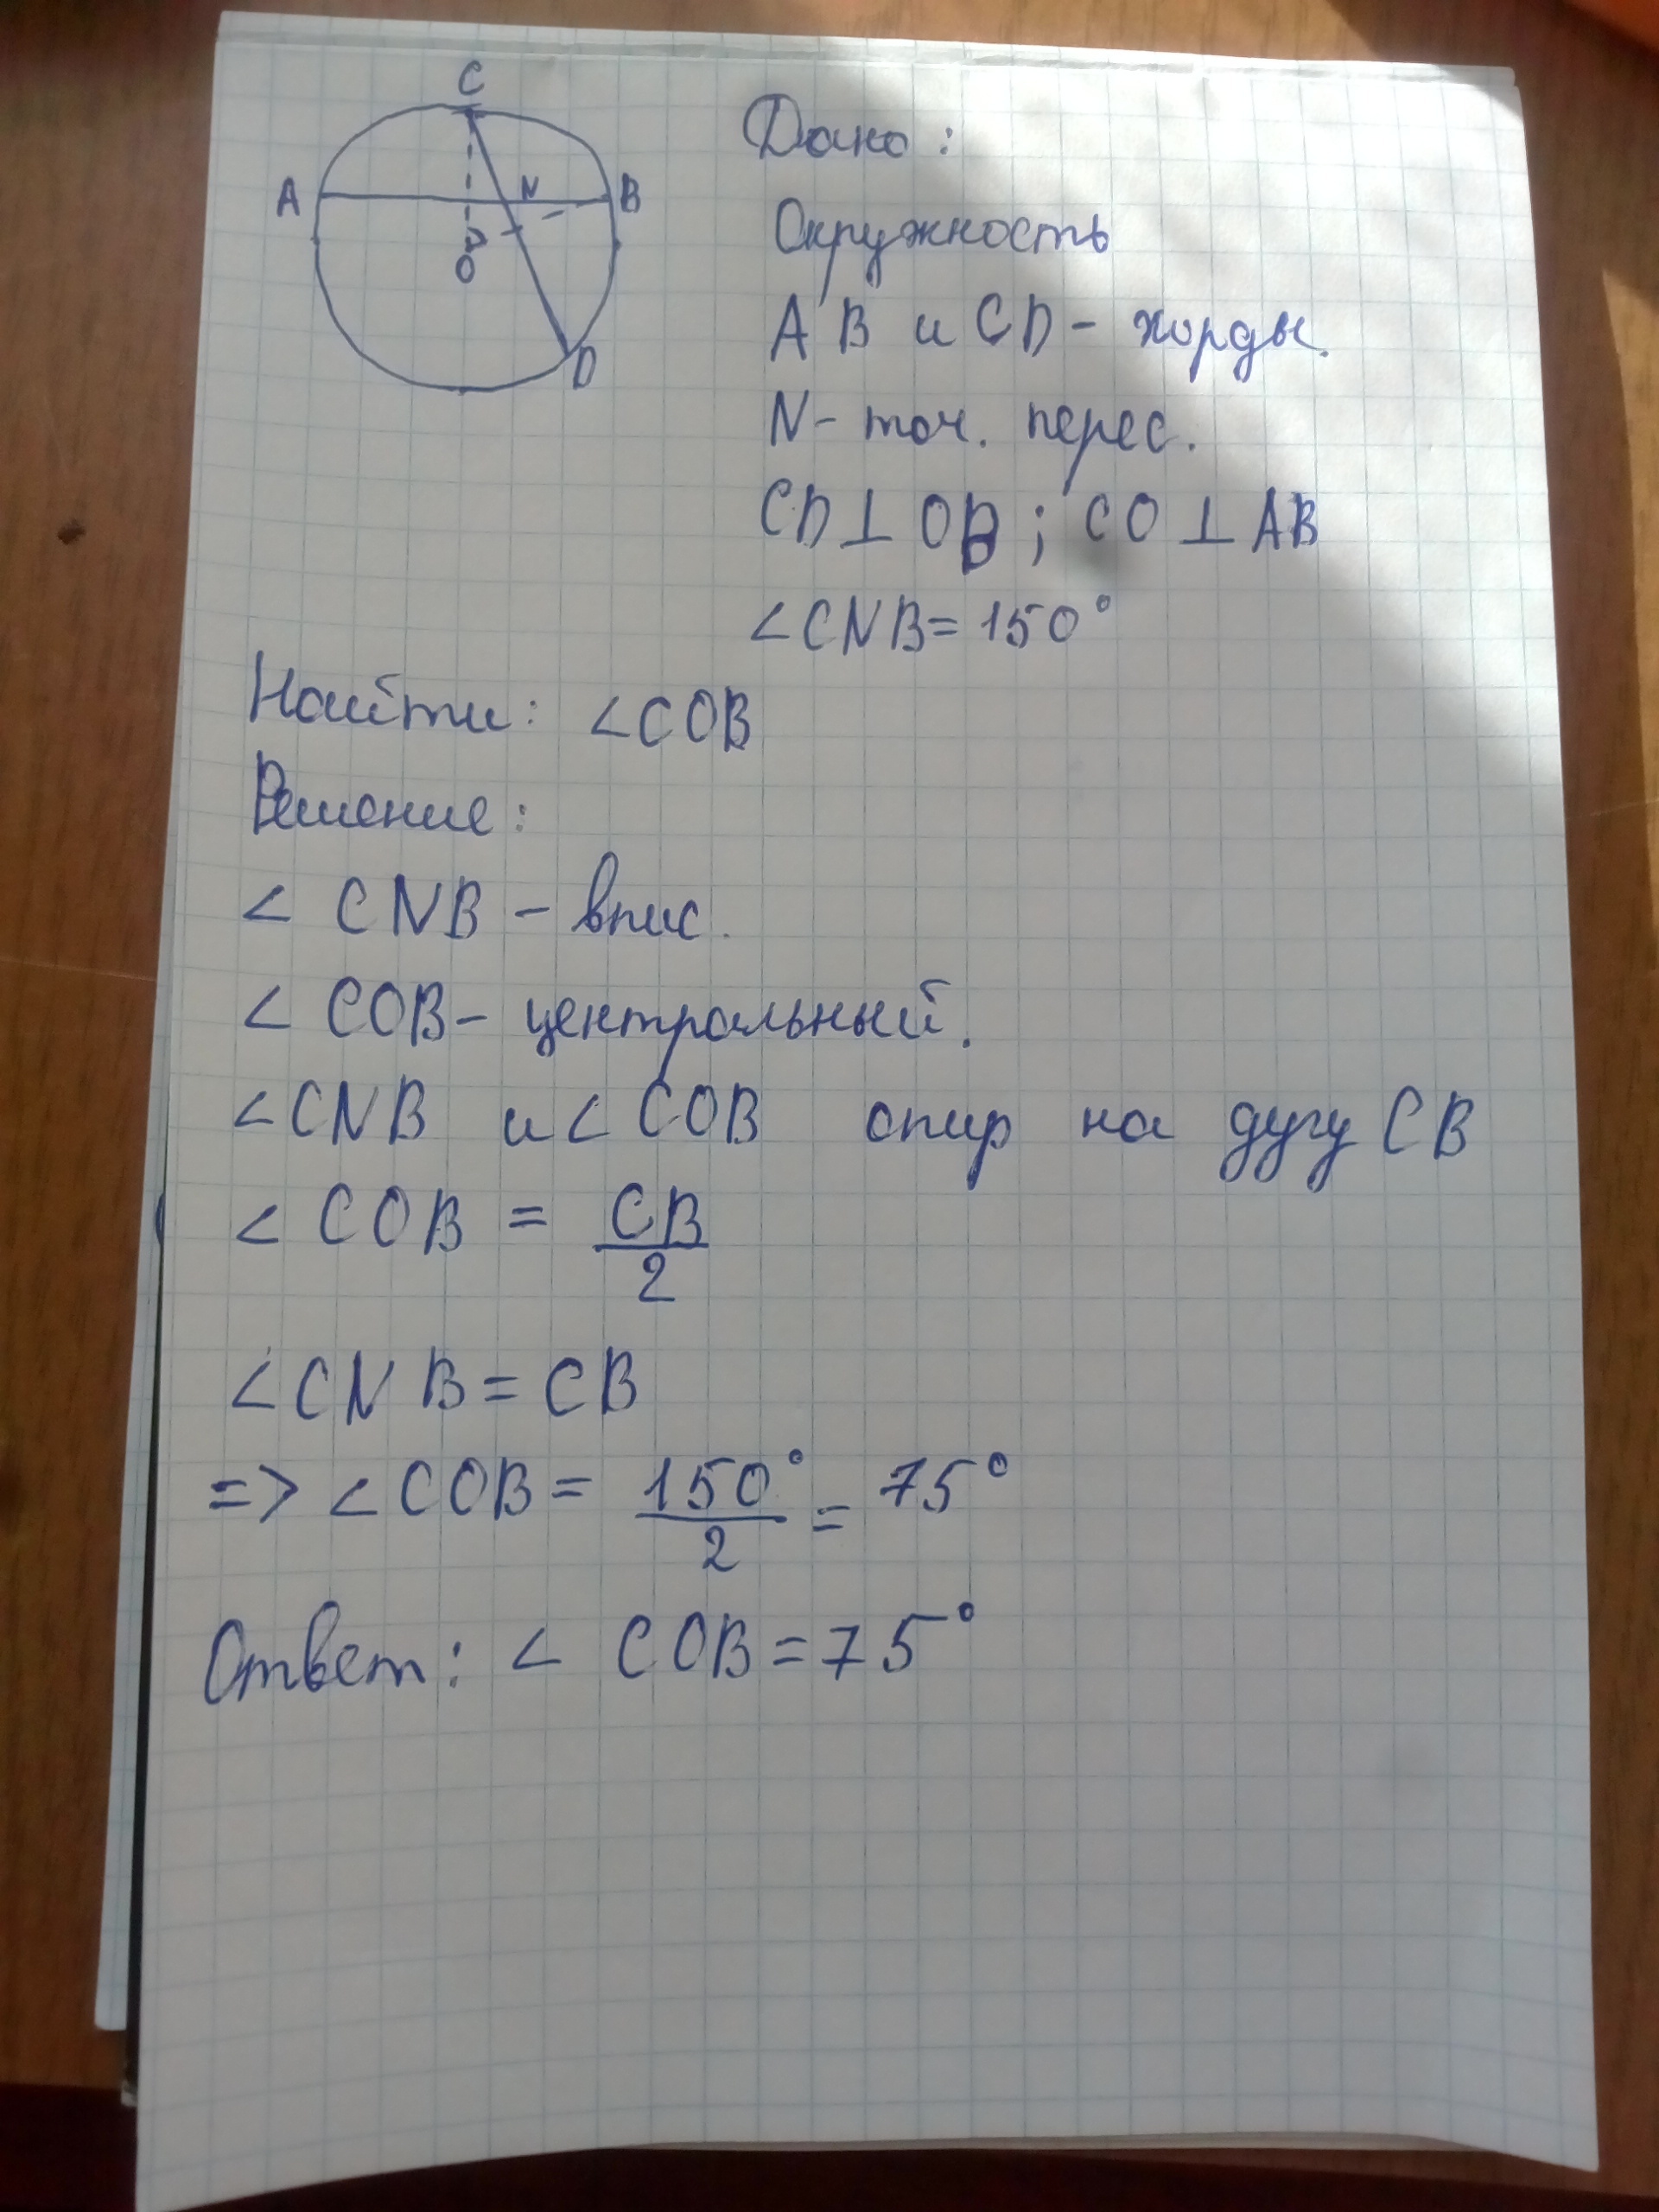 C
A
N
B
O
D
Дано:
Окружность
AB и CD - хорды.
N - точ. перес.
CD ⊥ OB; CO ⊥ AB
∠CNB = 150°
Найти: ∠COB
Решение:
∠ CNB - впис.
∠ COB - центральный.
∠CNB и ∠COB опир на дугу CB
∠ COB = CB/2
∠CNB = CB
=> ∠COB = 150°/2 = 75°
Ответ: ∠ COB = 75°